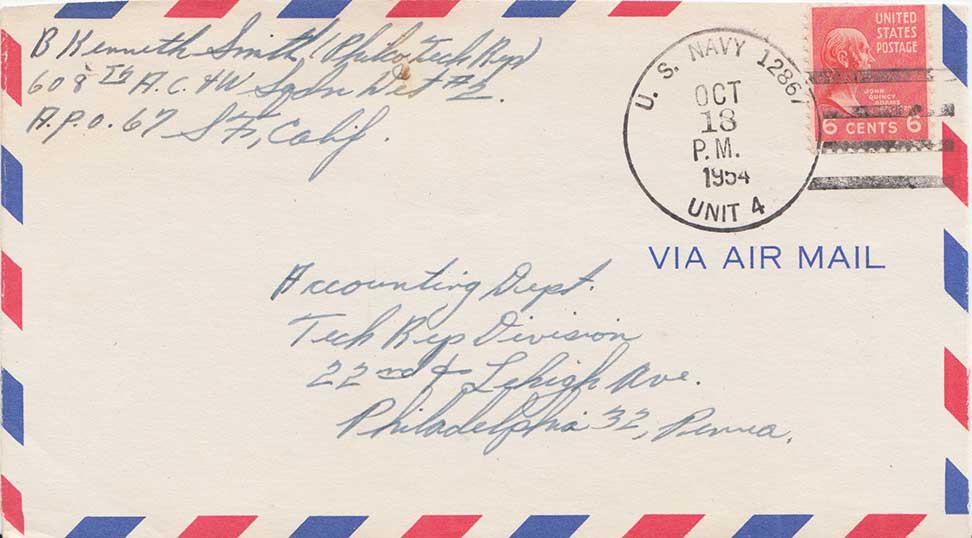 B Kenneth Smith (Philco Tech Rep)
608th A.C. & W Sqdn Det #2.
A.P.O. 67 SF, Calif.
U. S. NAVY 12867
OCT
18
P.M.
1954
UNIT 4
UNITED
STATES
POSTAGE
JOHN
QUINCY
ADAMS
6 CENTS 6
VIA AIR MAIL
Accounting Dept.
Tech Rep Division
22nd & Lehigh Ave.
Philadelphia 32, Penna.